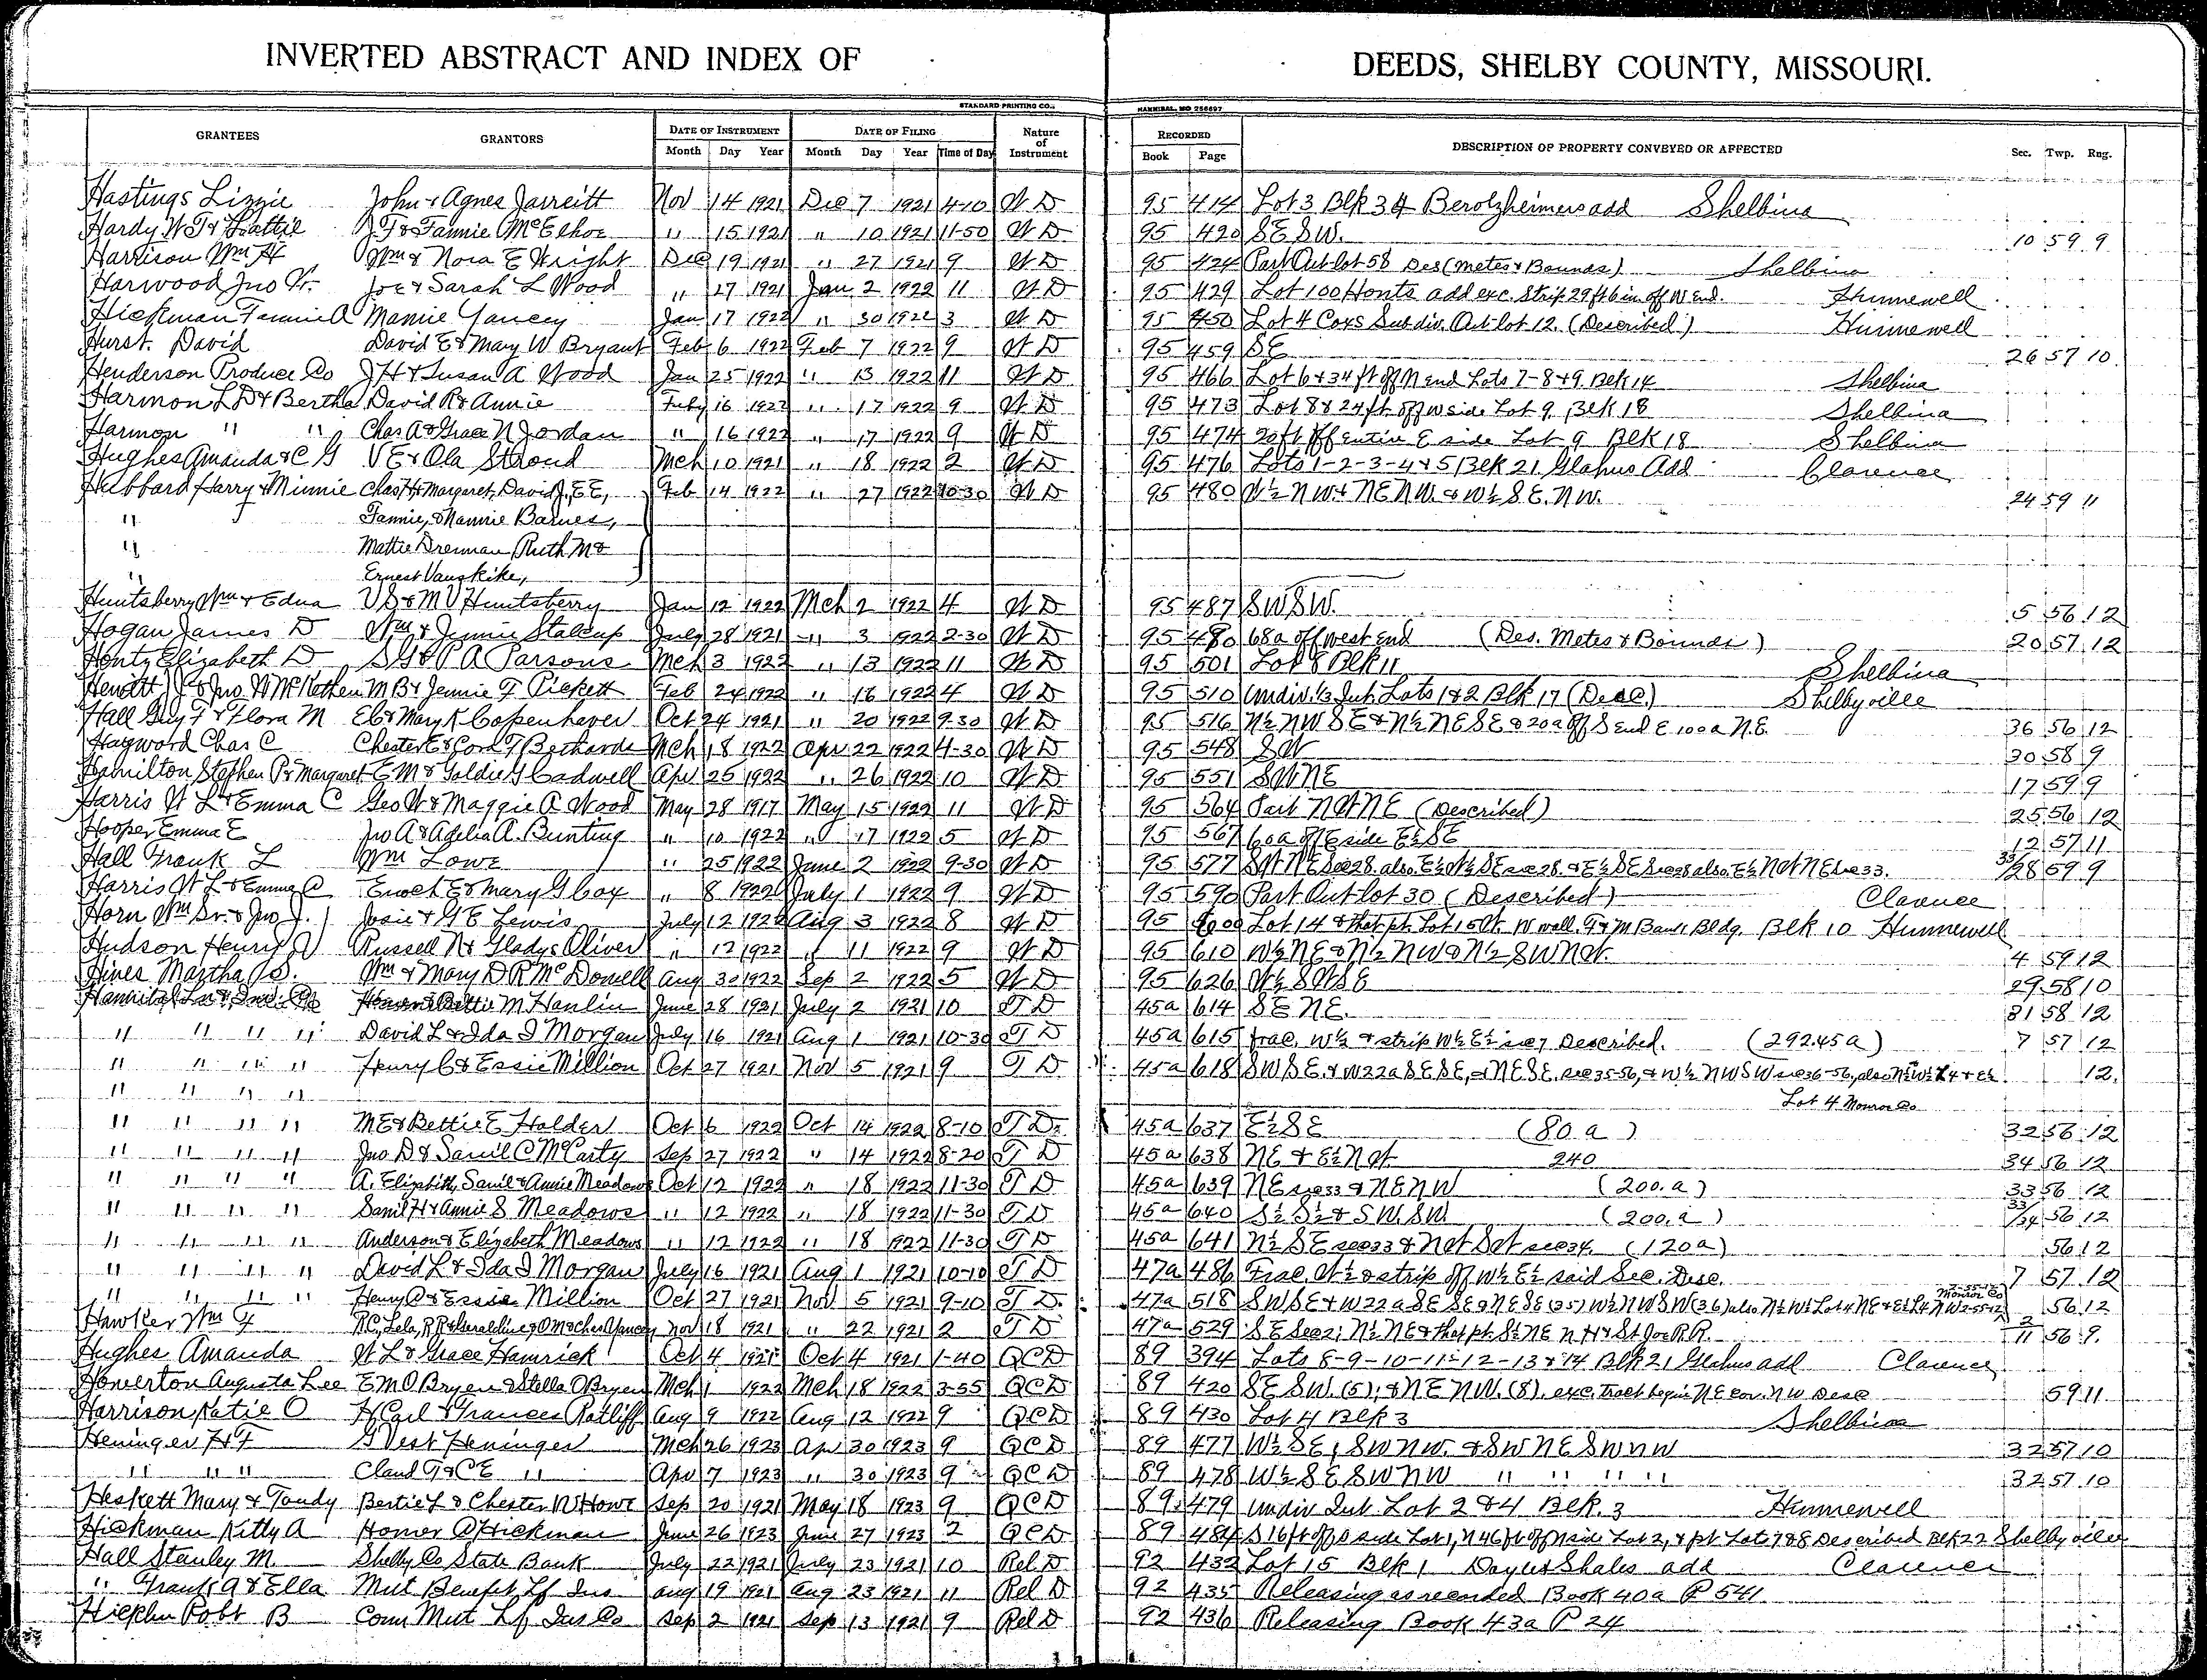 INVERTED ABSTRACT AND INDEX OF DEEDS, SHELBY COUNTY, MISSOURI.
STANDARD PRINTING CO., HANNIBAL, MO 256697
GRANTEES GRANTORS DATE OF INSTRUMENT DATE OF FILING Nature of Instrument RECORDED DESCRIPTION OF PROPERTY CONVEYED OR AFFECTED Sec. Twp. Rng.
Month Day Year Month Day Year Time of Day Book Page
Hastings Lizzie John & Agnes Jarreitt Nov 14 1921 Dec 7 1921 4-10 W D 95 414 Lot 3 Blk 34 Berolzheimers add Shelbina
Hardy W T & Hattie J T & Fannie McElhoe " 15 1921 " 10 1921 11-50 W D 95 420 SE SW. 10 59 9
Harrison Wm H Wm & Nora E Wright Dec 19 1921 " 27 1921 9 W D 95 424 Part Out-lot 58 Des (Metes & Bounds) Shelbina
Harwood Jno W. Joe & Sarah L Wood " 27 1921 Jan 2 1922 11 W D 95 429 Lot 100 Honts add exc. Strip 29 ft 6 in off W End. Hunnewell
Hickman Fannie A Mamie Yancey Jan 17 1922 " 30 1922 3 W D 95 450 Lot 4 Coxs Subdiv. Out lot 12. (Described) Hunnewell
Hurst. David David E & Mary W Bryant Feb 6 1922 Feb 7 1922 9 W D 95 459 SE 26 57 10
Henderson Produce Co J H & Susan A Wood Jan 25 1922 " 13 1922 11 W D 95 466 Lot 6 & 34 ft off N end Lots 7-8 & 9 Blk 14 Shelbina
Harmon L D & Bertha David R & Annie Feby 16 1922 " 17 1922 9 W D 95 473 Lot 8 & 24 ft. off W side Lot 9 Blk 18 Shelbina
Harmon " " Chas A & Grace N Jordan " 16 1922 " 17 1922 9 W D 95 474 20 ft off entire E side Lot 9 Blk 18 Shelbina
Hughes Amanda & C G V E & Ola Stroud Mch 10 1921 " 18 1922 2 W D 95 476 Lots 1-2-3-4 & 5 Blk 21 Glahns Add Clarence
Hubbard Harry & Minnie Chas H & Margaret, David J, E E, Feb 14 1922 " 27 1922 10-30 W D 95 480 W½ NW & NE NW. & W½ S.E. NW. 24 59 11
" Fannie, & Nannie Barnes,
" Mattie Drennan, Ruth M &
" Ernest Vanskike,
Huntsberry Wm & Edna V S & M V Huntsberry Jan 12 1922 Mch 2 1922 4 W D 95 487 SW SW. 5 56 12
Hogan James D Wm & Jennie Stalcup July 28 1921 " 3 1922 2-30 W D 95 480 68a off west end (Des. Metes & Bounds) 20 57 12
Henty Elizabeth D S G & P A Parsons Mch 3 1922 " 13 1922 11 W D 95 501 Lot 8 Blk 11 Shelbina
Hewitt J F & Jno W McKethen M B & Jennie F Pickett Feb 24 1922 " 16 1922 4 W D 95 510 Undiv. ⅓ Int. Lots 1 & 2 Blk 17 (Desc.) Shelbyville
Hall Guy F & Flora M E C & Mary K Copenhaver Oct 24 1921 " 20 1922 9-30 W D 95 516 N½ NW SE & N½ NE SE & 20a off S end E 100a N.E. 36 56 12
Hayword Chas C Chester E & Cora F Bethards Mch 18 1922 Apr 22 1922 4-30 W D 95 548 SW 30 58 9
Hamilton Stephen P & Margaret E M & Goldie G Cadwell Apr 25 1922 " 26 1922 10 W D 95 551 SW NE 17 59 9
Harris W L & Emma C Geo W & Maggie A Wood May 28 1917 May 15 1922 11 W D 95 564 Part NW NE (Described) 25 56 12
Hooper Emma E Jno A & Adelia A. Bunting " 10 1922 " 17 1922 5 W D 95 567 60a off E side E½ SE 12 57 11
Hall Frank L Wm Lowe " 25 1922 June 2 1922 9-30 W D 95 577 SW NE sec 28. also E½ W½ SE sec 28. & E½ SE sec 28 also E½ NW NE sec 33. 33/28 59 9
Harris W L & Emma C Enoch E & Mary G Cox " 8 1922 July 1 1922 9 W D 95 590 Part Out-lot 30 (Described) Clarence
Horn Wm Sr. & Jno J. Josie & G E Lewis July 12 1922 Aug 3 1922 8 W D 95 600 Lot 14 & that pt. Lot 15 W. W wall. F & M Bank Bldg. Blk 10 Hunnewell
Hudson Henry W Russell N & Gladys Oliver " 12 1922 " 11 1922 9 W D 95 610 W½ NE & N½ NW & N½ SW NW. 4 59 12
Hines Martha S. Wm & Mary D R McDowell Aug 30 1922 Sep 2 1922 5 W D 95 626 W½ SW SE 29 58 10
Hannibal M Hanlin June 28 1921 July 2 1921 10 T D 45a 614 SE NE. 31 58 12
" " " " David L & Ida I Morgan July 16 1921 Aug 1 1921 10-30 T D 45a 615 frac. W½ & strip W½ E½ sec 7 Described. (292.45a) 7 57 12
" " " " Henry C & Essie Million Oct 27 1921 Nov 5 1921 9 T D 45a 618 SW SE. & W 22a SE SE, & NE SE. sec 35-56, & W½ NW SW sec 36-56, also N½ W½ L4 & E½ 12.
" " " " Lot 4 Monroe Co
" " " " M E & Bettie E Holder Oct 6 1922 Oct 14 1922 8-10 T D. 45a 637 E½ SE (80.a) 32 56 12
" " " " Jno D & Samil C McCarty Sep 27 1922 " 14 1922 8-20 T D 45a 638 NE & E½ NW. 240 34 56 12
" " " " A. Elizabeth, Samil & Annie Meadows Oct 12 1922 " 18 1922 11-30 T D 45a 639 NE sec 33 & NE NW (200.a) 33 56 12
" " " " Samil H & Annie S Meadows " 12 1922 " 18 1922 11-30 T D 45a 640 S½ S½ & S W. SW. (200.a) 33/34 56 12
" " " " Anderson & Elizabeth Meadows " 12 1922 " 18 1922 11-30 T D 45a 641 N½ SE sec 33 & NW SW sec 34. (120a) 56 12
" " " " David L & Ida I Morgan July 16 1921 Aug 1 1921 10-10 T D 47a 486 Frac. W½ & strip off W½ E½ said Sec. Desc. 7 57 12
" " " " Henry C & Essie Million Oct 27 1921 Nov 5 1921 9-10 T D. 47a 518 SW SE & W 22a SE SE & NE SE (35) W½ NW SW (36) also N½ W½ Lot 4 NE & E½ L4 NW 2-55-12 Monroe Co 56 12
Hawker Wm F R C, Lela, R R & Geraldine, O M & Chas Yancey Nov 18 1921 " 22 1921 2 T D 47a 529 SE Sec 2; N½ NE & that pt. S½ NE N H & St Joe R.R. 2/11 56 9.
Hughes Amanda W L & Grace Hamrick Oct 4 1921 Oct 4 1921 1-40 QCD 89 394 Lots 8-9-10-11-12-13 & 14 Blk 21 Glahns add Clarence
Howerton Augusta Lee E M O Bryen & Stella O Bryen Mch 1 1922 Mch 18 1922 3-55 QCD 89 420 SE SW. (5); & NE NW. (8). exc. tract begin NE cor. NW Desc 59 11
Harrison Katie O H Carl & Frances Ratliff Aug 9 1922 Aug 12 1922 9 QCD 89 430 Lot 4 Blk 3 Shelbina
Heninger H F G Vest Heninger Mch 26 1923 Apr 30 1923 9 QCD 89 477 W½ SE, SW NW. & SW NE SW NW 32 57 10
" " " Claud G & C E " Apr 7 1923 " 30 1923 9 QCD 89 478 W½ SE SW NW " " " " 32 57 10
Heskett Mary & Tandy Bertie L & Chester W Howe Sep 20 1921 May 18 1923 9 QCD 89 479 undiv Int. Lot 2 & 4 Blk. 3 Hunnewell
Hickman Kitty A Homer C Hickman June 26 1923 June 27 1923 2 QCD 89 484 S 16 ft off S side Lot 1, N 46 ft off N side Lot 2, & pt Lots 7 & 8 Described Blk 22 Shelbyville
Hall Stanley M Shelby Co State Bank July 22 1921 July 23 1921 10 Rel D 92 432 Lot 15 Blk 1 Day & Shales add Clarence
" Frank A & Ella Mut Benefit Lf Ins Aug 19 1921 Aug 23 1921 11 Rel D 92 435 Releasing as recorded Book 40a P 541
Robt B Conn Mut Lf Ins Co Sep 2 1921 Sep 13 1921 9 Rel D 92 436 Releasing Book 43a P 24